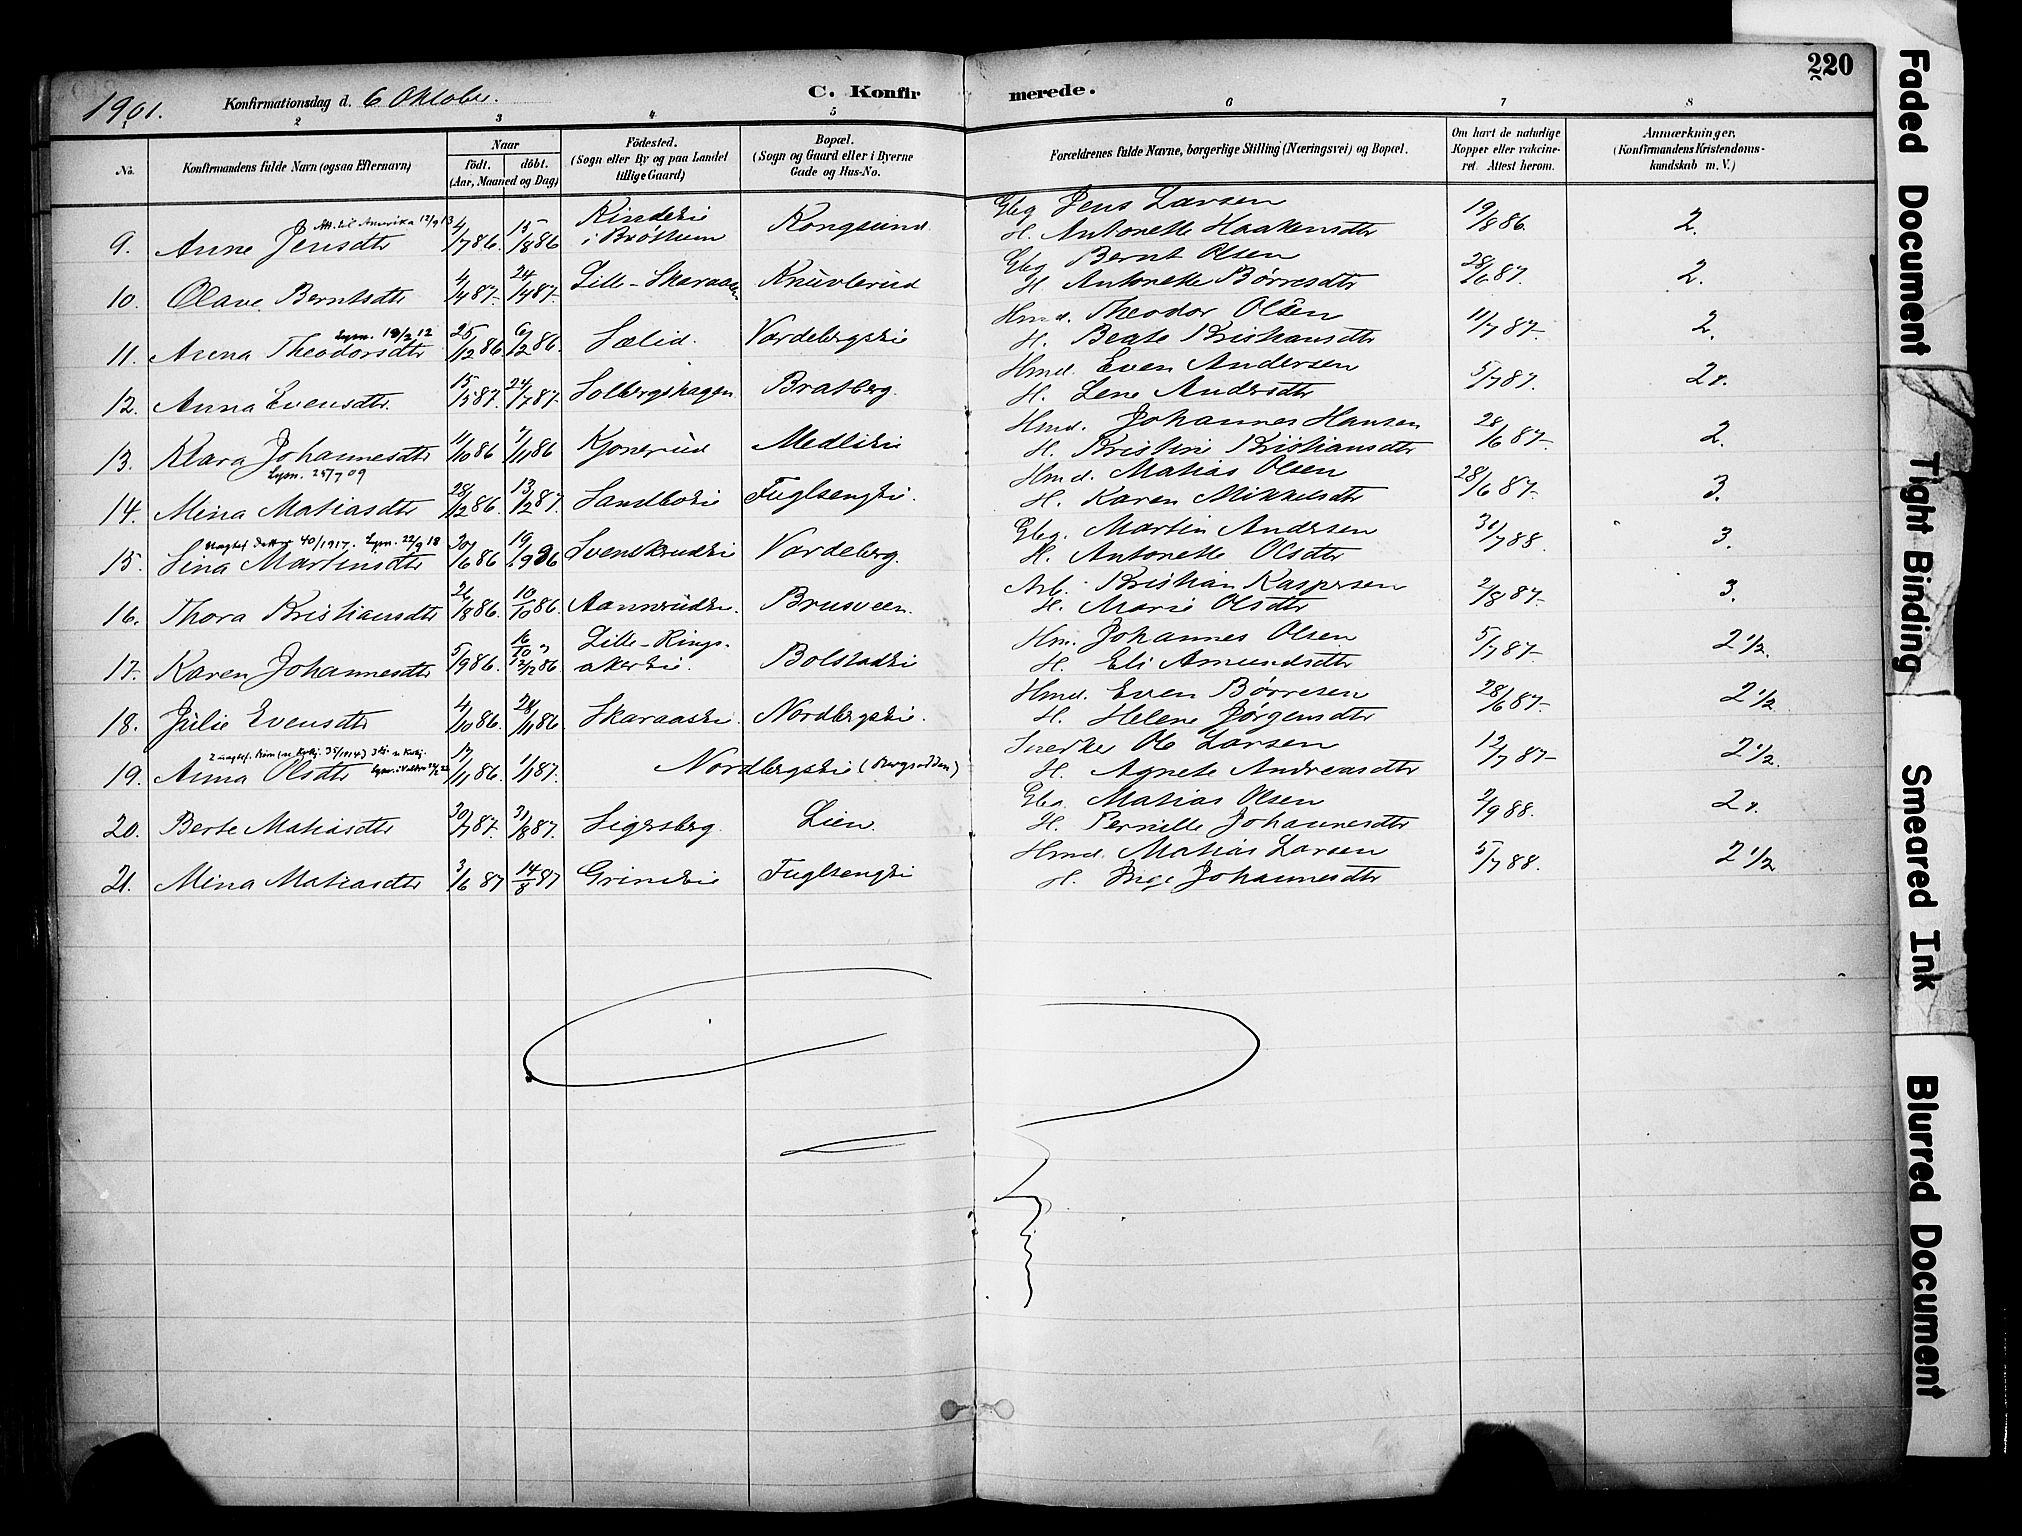 220
1901. Konfirmationsdag d. 6 Oktober. C. Konfirmerede.
1 2 3 4 5 6 7 8
No. Konfirmandens fulde Navn (ogsaa Efternavn) Naar födt. döbt. (Aar, Maaned og Dag) Födested. (Sogn eller By og paa Landet tillige Gaard) Bopæl. (Sogn og Gaard eller i Byerne Gade og Hus-No. Forældrenes fulde Navne, borgerlige Stilling (Næringsvei) og Bopæl. Om havt de naturlige Kopper eller vakcineret. Attest herom. Anmærkninger. (Konfirmandens Kristendomskundskab m. V.)
Att. til Amerika 12/9 13
9. Anne Jensdtr 4/7 86. 15/8 86 Kindsei i Bröttum Kongsund Gbg Jens Larsen H. Antonette Haakensdtr 19/8 86. 2.
10. Olave Berntsdtr 4/4 87. 24/4 87. Lille-Skaraaen Knuvlerud Gbg Bernt Olsen H Antonette Børresdtr 28/6 87. 2.
11. Anna Theodorsdtr 25/12 86 6/2 86. Sælid. Vardebergsei Hmd. Theodor Olsen H. Beate Kristiansdtr 11/7 87. 2.
12. Anna Evensdtr. 15/5 87. 24/7 87. Solbergshagen Bratberg. Hmd. Even Andersen H. Lene Andersdtr 5/7 87. 2.
13. Klara Johannesdtr 11/10 86 7/11 86 Kjonerud Medlisei Hmd. Johannes Hansen H. Kristine Kristiansdtr 28/6 87. 2.
Lysn. 25/7 09
14. Mina Matiasdtr 28/12 86. 13/2 87. Sandbosei Fuglsengsei. Hmd. Matias Olsen H. Karen Mikkelsdtr 28/6 87. 3.
Uægtef. datter 40/1917. Lysn. 22/9 18
15. Lina Martinsdtr 30/6 86 19/9 86 Svenskrudsei Vardeberg. Gbg. Martin Andersen H. Antonette Olsdtr 31/7 88. 3.
16. Thora Kristiansdtr 21/8 86. 10/10 86. Aannerudsei. Brusveen. Arb. Kristian Kaspersen H. Marie Olsdtr 2/8 87. 3.
17. Karen Johannesdtr 5/9 86. 16/10 12/12 86 Lille-Ringsakersei. Bolstadsei Hm. Johannes Olsen H. Eli Amundsdtr 5/7 87. 2 1/2.
18. Julie Evensdtr 4/10 86. 28/11 86 Skaraasei. Nordbergsei. Hmd. Even Børresen H. Helene Jørgensdtr 28/6 87. 2 1/2
19. Anna Olsdtr 17/11 86. 1/1 87. Nordbergsei (Bergsodden) Snedker Ole Larsen H. Agnete Andreasdtr 12/7 87. 2 1/2.
20. Berte Matiasdtr 30/7 87. 31/8 87. Sigersberg. Lien. Gbg. Matias Olsen H. Pernille Johannesdtr 2/9 88. 2.
21. Mina Matiasdtr 3/6 87 14/8 87 Grindsei Fuglsengsei Hmd. Matias Larsen H. Inge Johannesdtr 5/7 88. 2 1/2
Faded Document
Tight Binding
Smeared Ink
Blurred Document